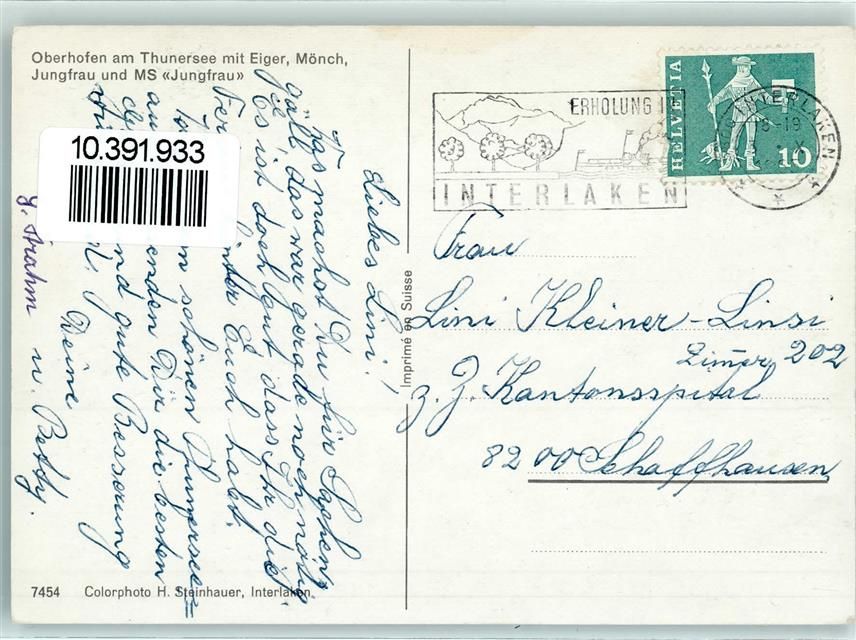 Oberhofen am Thunersee mit Eiger, Mönch,
Jungfrau und MS «Jungfrau»
10.391.933
Liebes Lini!
was machst Du für Sachen,
gäll, das war gerade noch nötig
Es ist doch gut dass Ihr die
hinter Euch habt.
schönen Thunersee=
enden Dir die besten
und gute Besserung
Deine
y. Strahm u. Betty.
7454 Colorphoto H. Steinhauer, Interlaken
Imprimé en Suisse
ERHOLUNG I
INTERLAKEN
HELVETIA
10
INTERLAKEN
18-19
Frau
Lini Kleiner-Linsi
Zimer 202
z. Z. Kantonsspital
8200 Schaffhausen